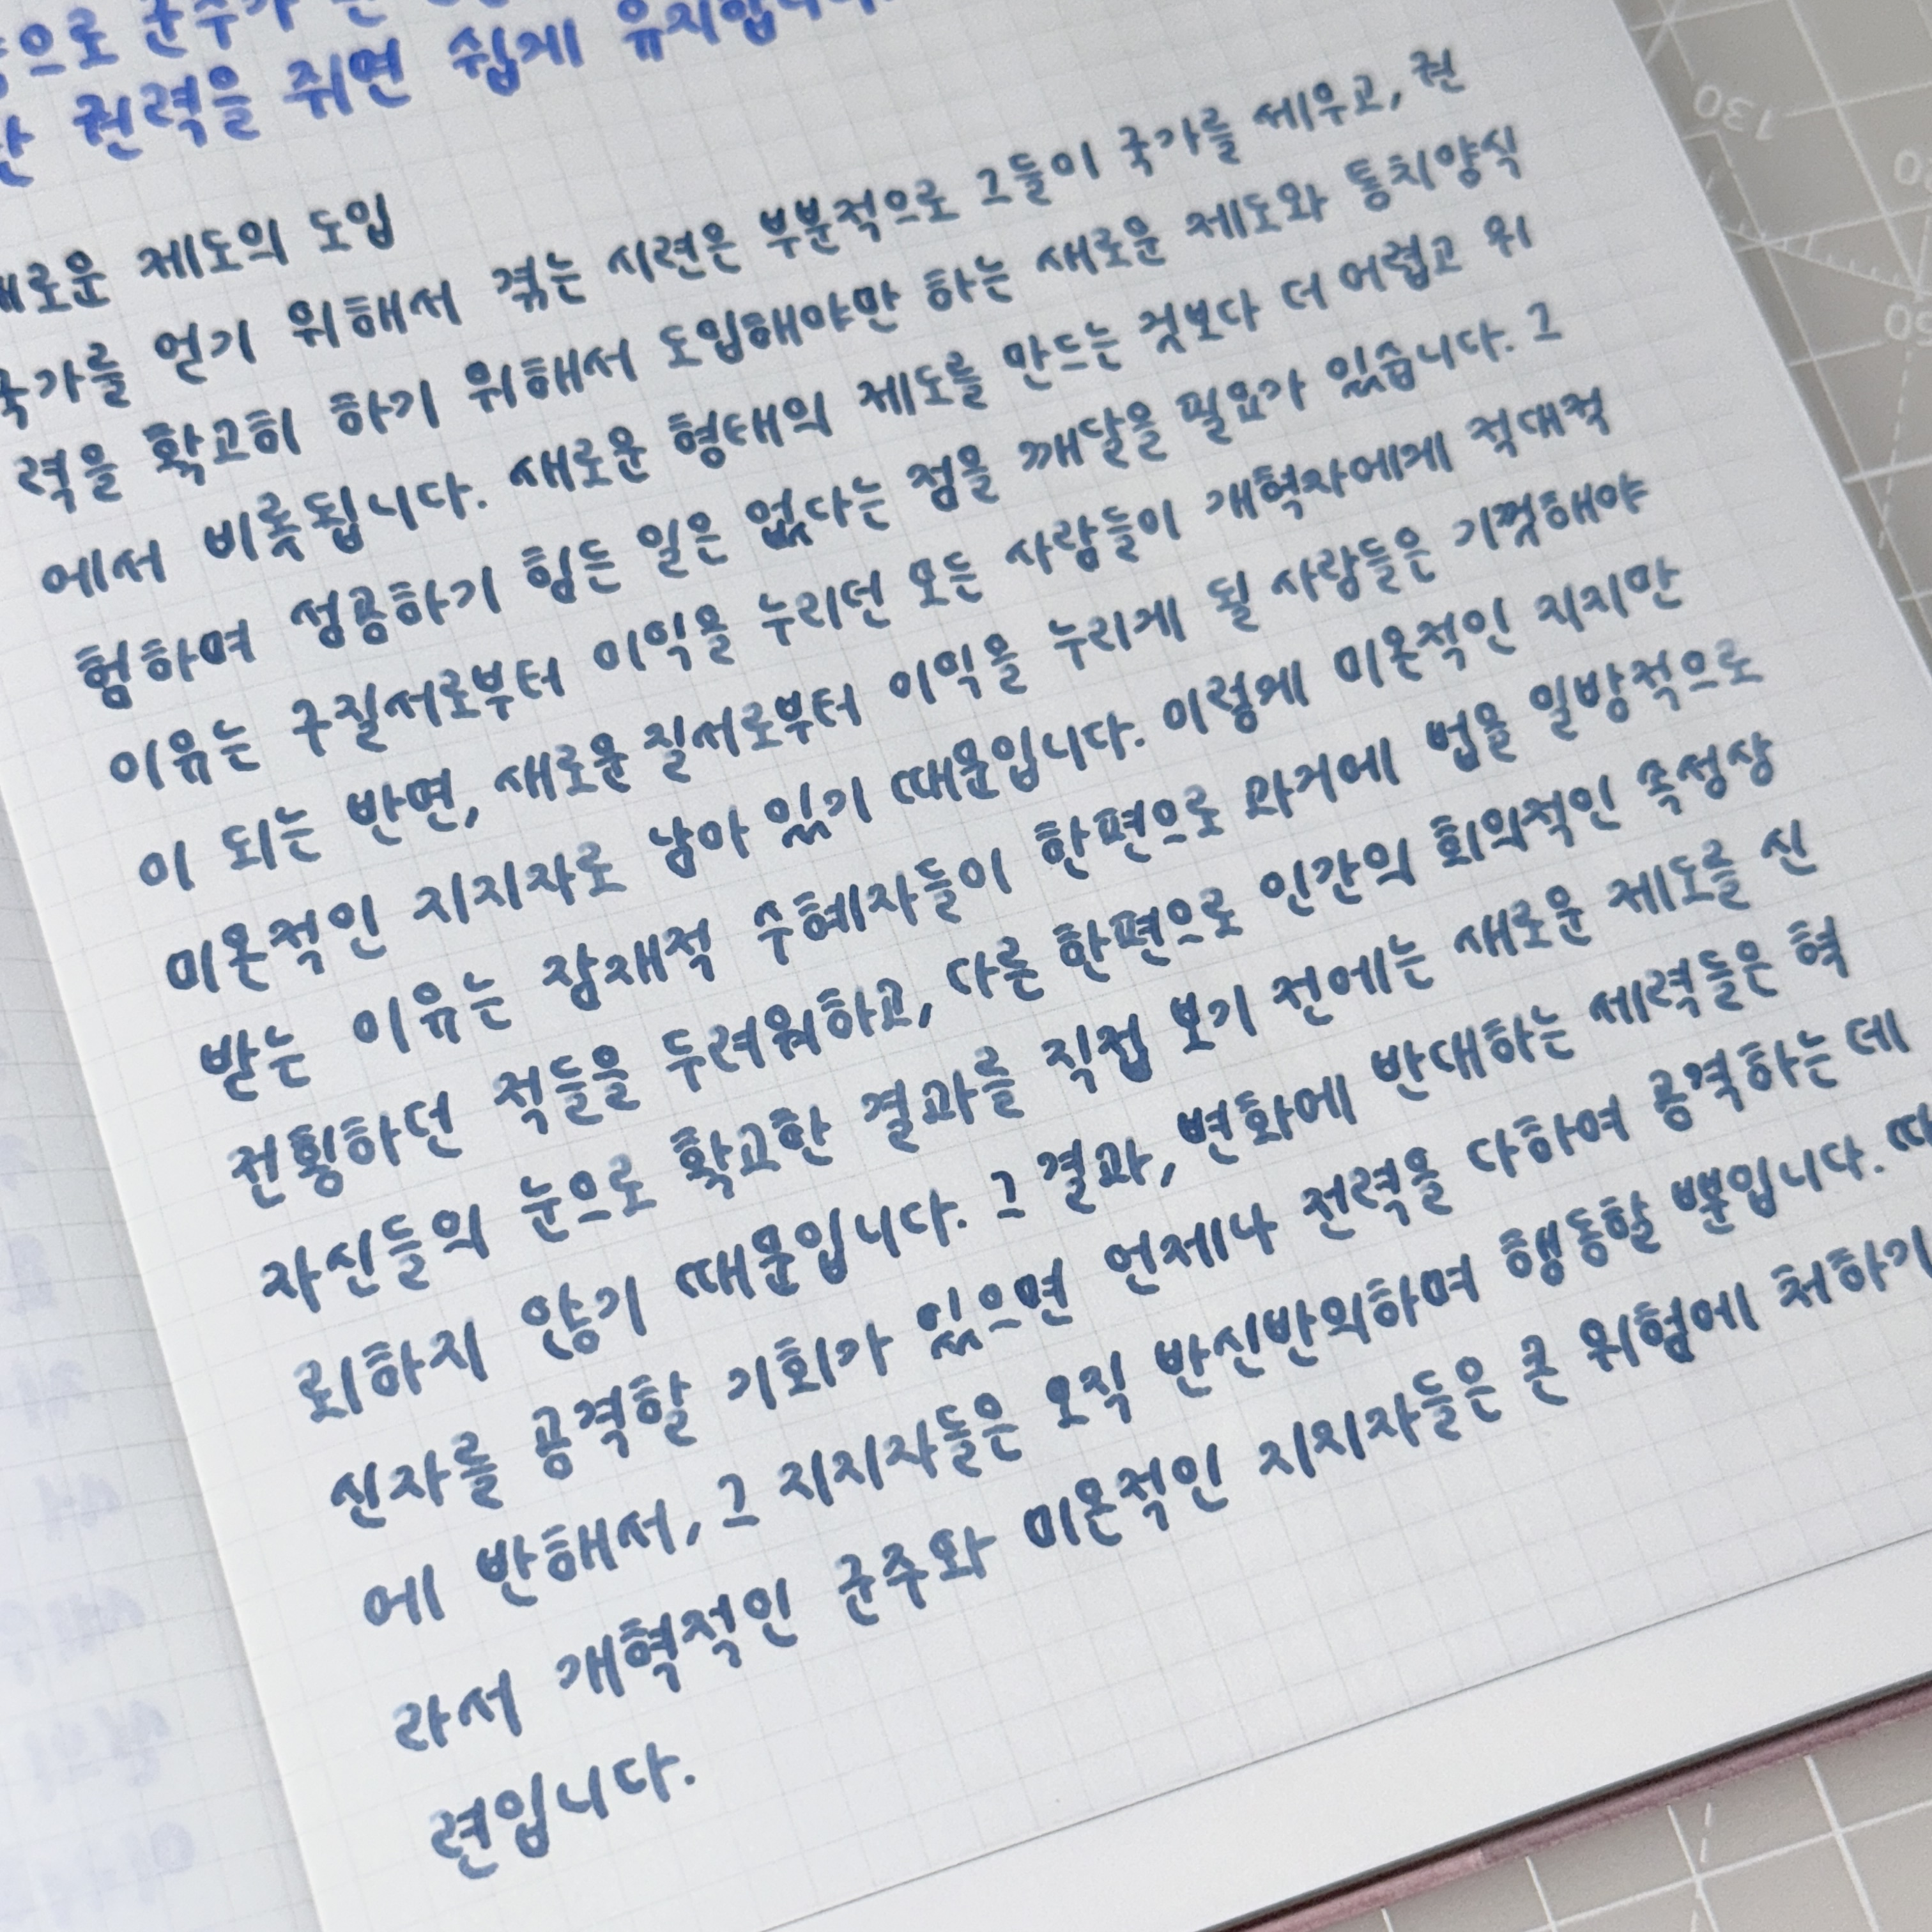 으로 군주가
권력을 쥐면 쉽게 유지합니다
새로운 제도의 도입
국가를 얻기 위해서 겪는 시련은 부분적으로 그들이 국가를 세우고, 권
력을 확고히 하기 위해서 도입해야만 하는 새로운 제도와 통치양식
에서 비롯됩니다. 새로운 형태의 제도를 만드는 것보다 더 어렵고 위
험하며 성공하기 힘든 일은 없다는 점을 깨달을 필요가 있습니다. 그
이유는 구질서로부터 이익을 누리던 모든 사람들이 개혁자에게 적대적
이 되는 반면, 새로운 질서로부터 이익을 누리게 될 사람들은 기껏해야
미온적인 지지자로 남아 있기 때문입니다. 이렇게 미온적인 지지만
받는 이유는 잠재적 수혜자들이 한편으로 과거에 법을 일방적으로
전횡하던 적들을 두려워하고, 다른 한편으로 인간의 회의적인 속성상
자신들의 눈으로 확고한 결과를 직접 보기 전에는 새로운 제도를 신
뢰하지 않기 때문입니다. 그 결과, 변화에 반대하는 세력들은 혁
신자를 공격할 기회가 있으면 언제나 전력을 다하여 공격하는데
에 반해서, 그 지지자들은 오직 반신반의하며 행동할 뿐입니다. 따
라서 개혁적인 군주와 미온적인 지지자들은 큰 위험에 처하기
련입니다.